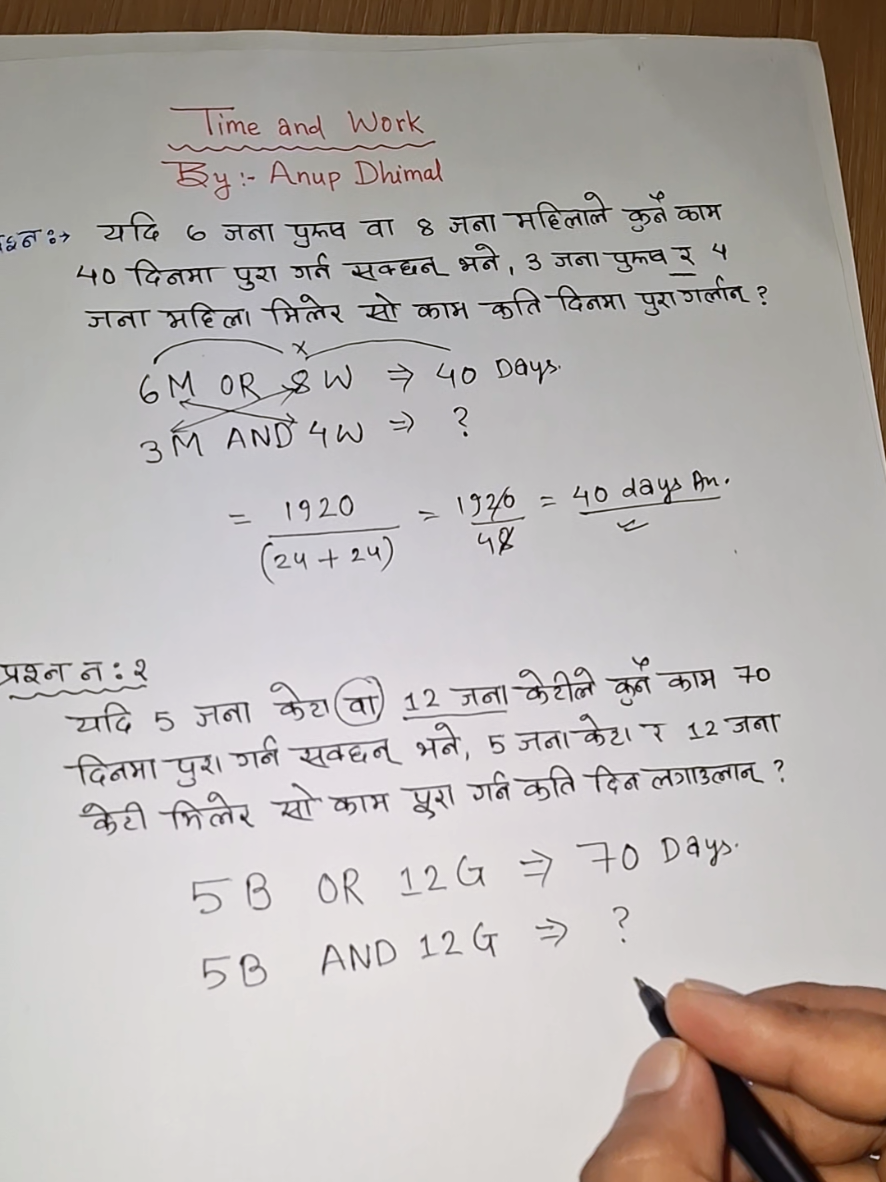 Time and Work
By:- Anup Dhimal
यदि 6 जना पुरुष वा 8 जना महिलाले कुनै काम
40 दिनमा पुरा गर्न सक्छन् भने, 3 जना पुरुष र 4
जना महिला मिलेर सो काम कति दिनमा पुरा गर्लान् ?
x
6M OR 8W ⇒ 40 Days.
3M AND 4W ⇒ ?
= 1920 / (24 + 24) = 1920 / 48 = 40 days An.
प्रश्न न : २
यदि 5 जना केटा वा 12 जना केटीले कुनै काम 70
दिनमा पुरा गर्न सक्छन् भने, 5 जना केटा र 12 जना
केटी मिलेर सो काम पूरा गर्न कति दिन लगाउलान् ?
5B OR 12G ⇒ 70 Days.
5B AND 12G ⇒ ?